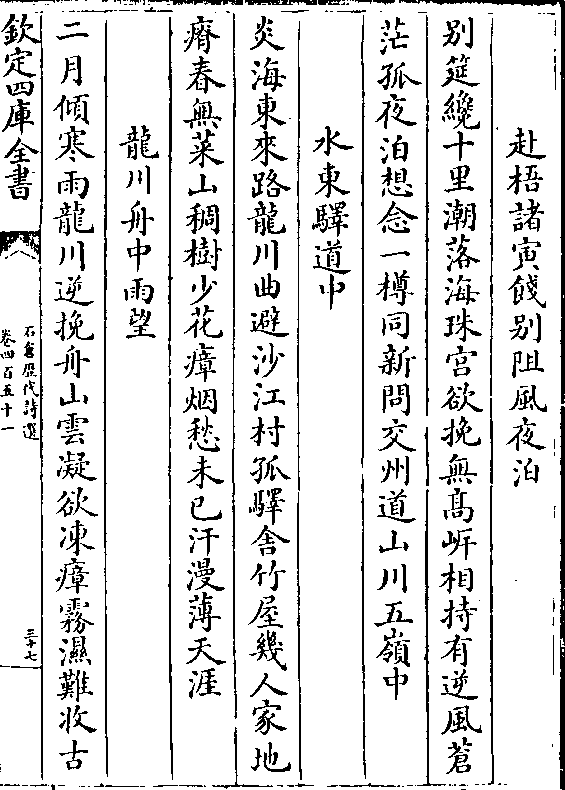 赴梧諸寅餞别阻風夜泊
别筵纔十里潮落海珠宫欲挽無髙㟁相持有逆風蒼
茫孤夜泊想念一樽同新問交州道山川五嶺中
水東驛道中
炎海東來路龍川曲避沙江村孤驛舍竹屋幾人家地
瘠春無菜山稠樹少花瘴烟愁未已汗漫薄天涯
龍川舟中雨望
二月傾寒雨龍川逆挽舟山雲凝欲凍瘴霧濕難收古
欽定四庫全書
石倉歷代詩選
卷四百五十一
三十七